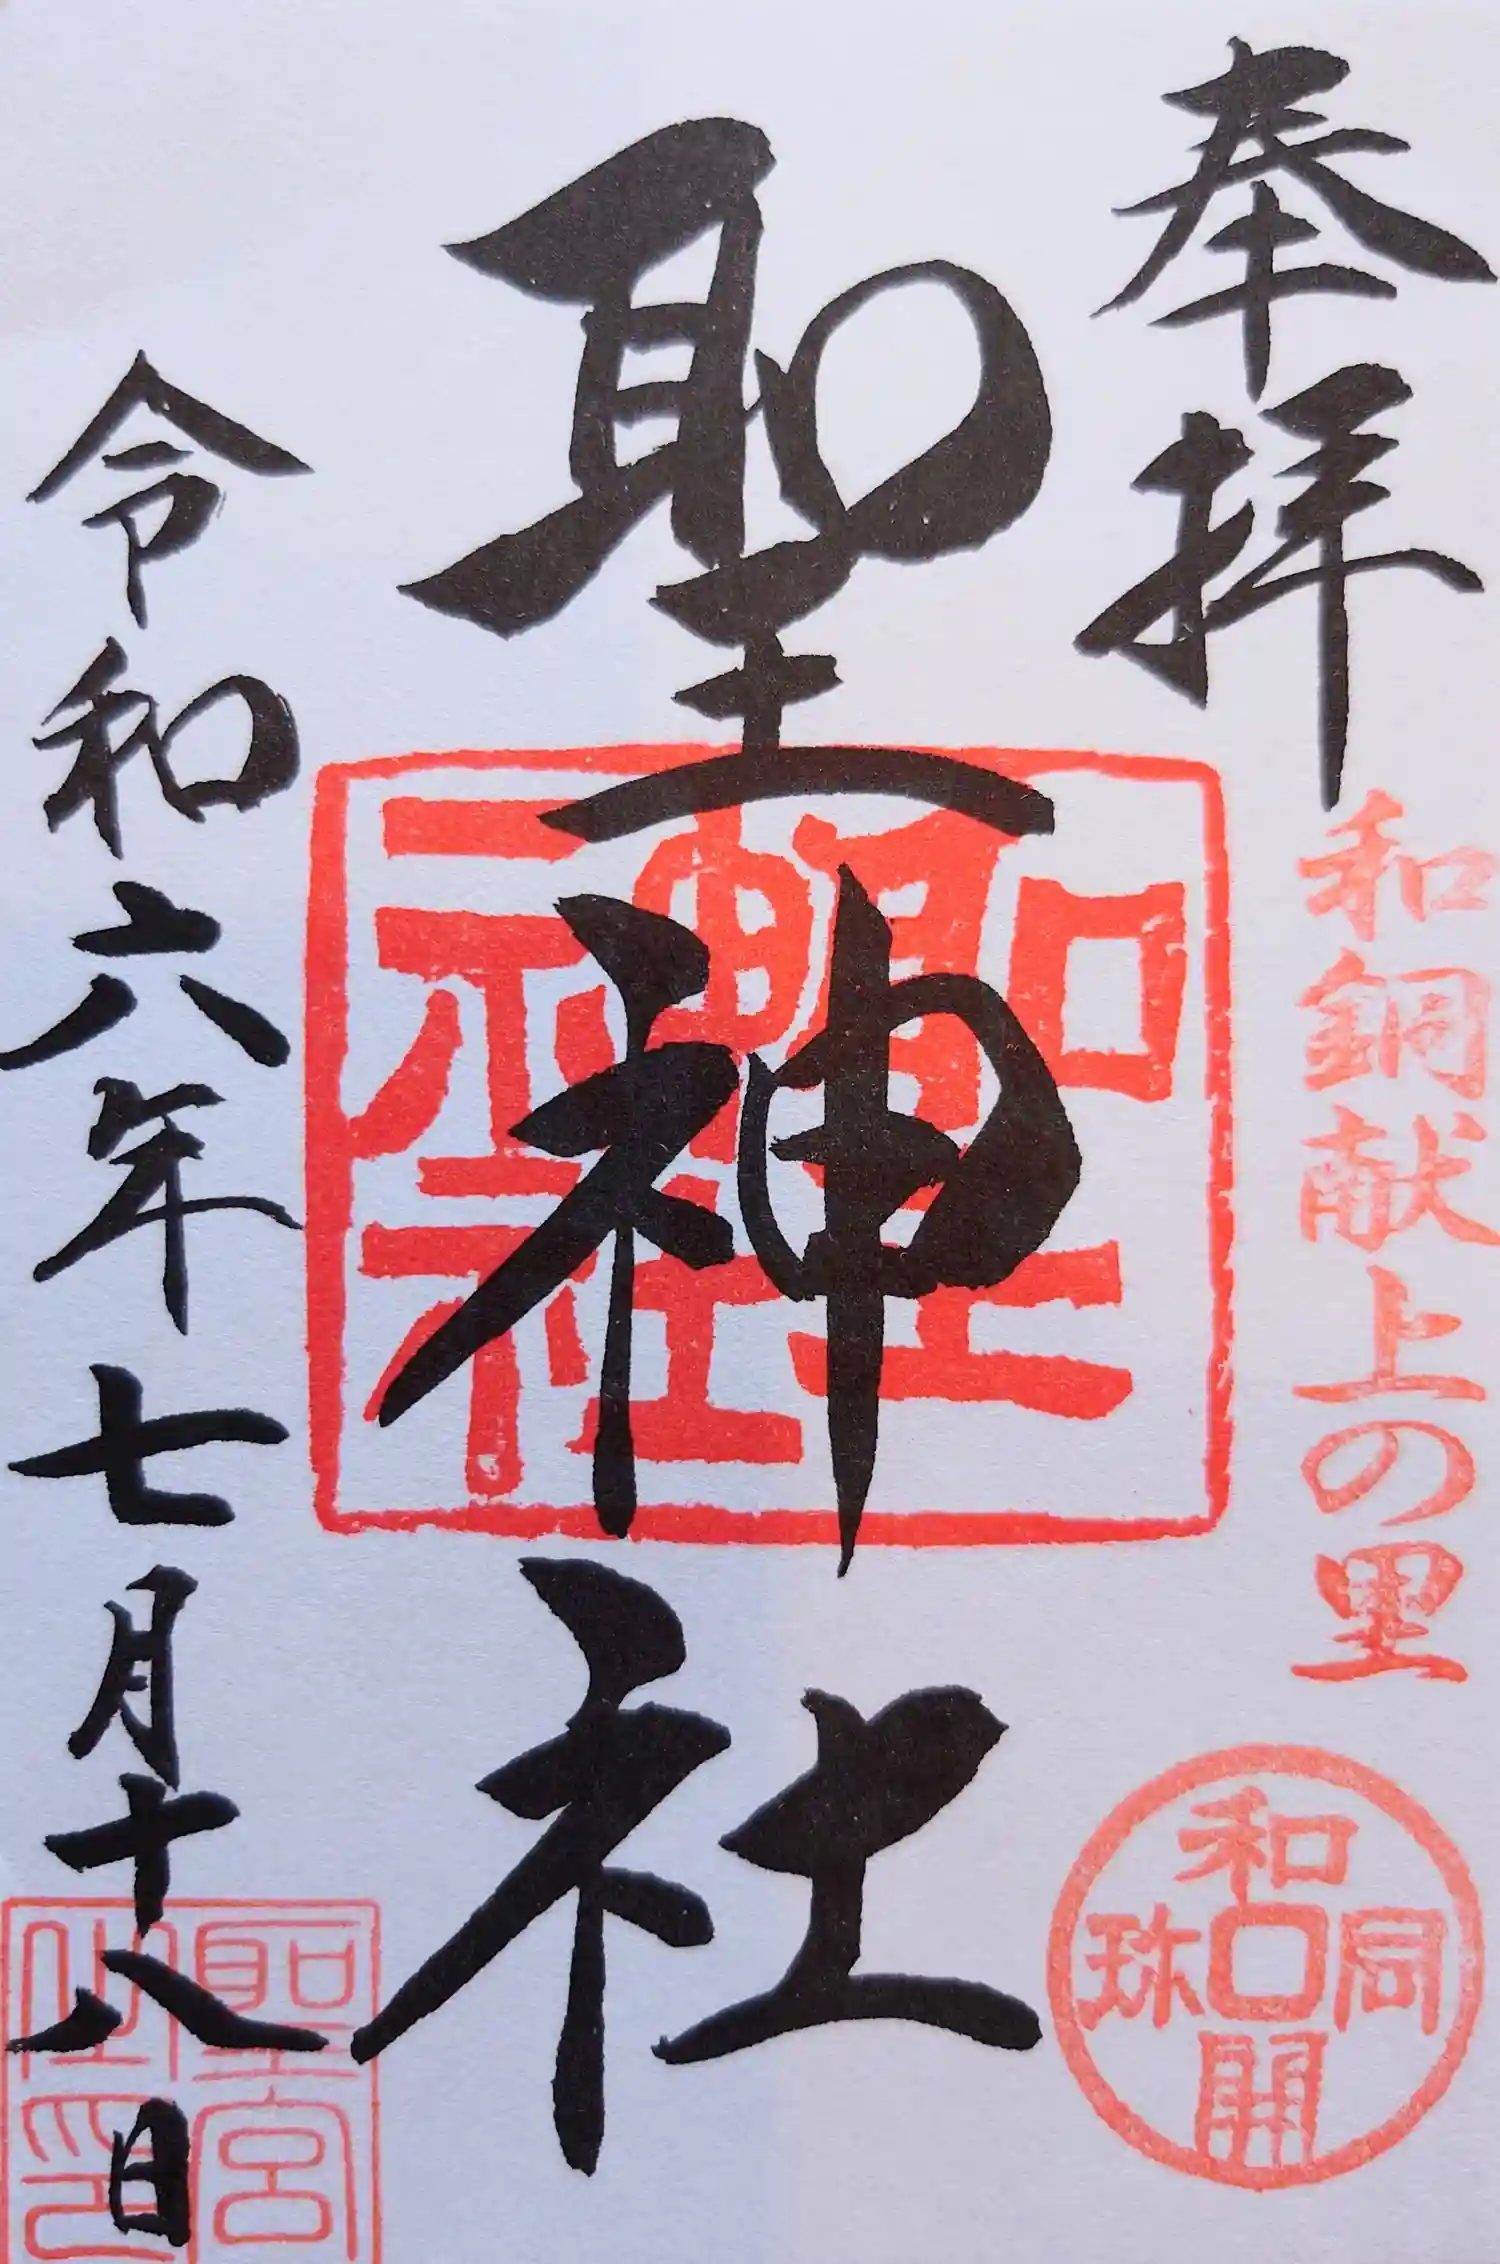 奉拝
和銅献上の里
和同開珎
聖神社
聖神社
令和六年七月十八日
聖宮之印